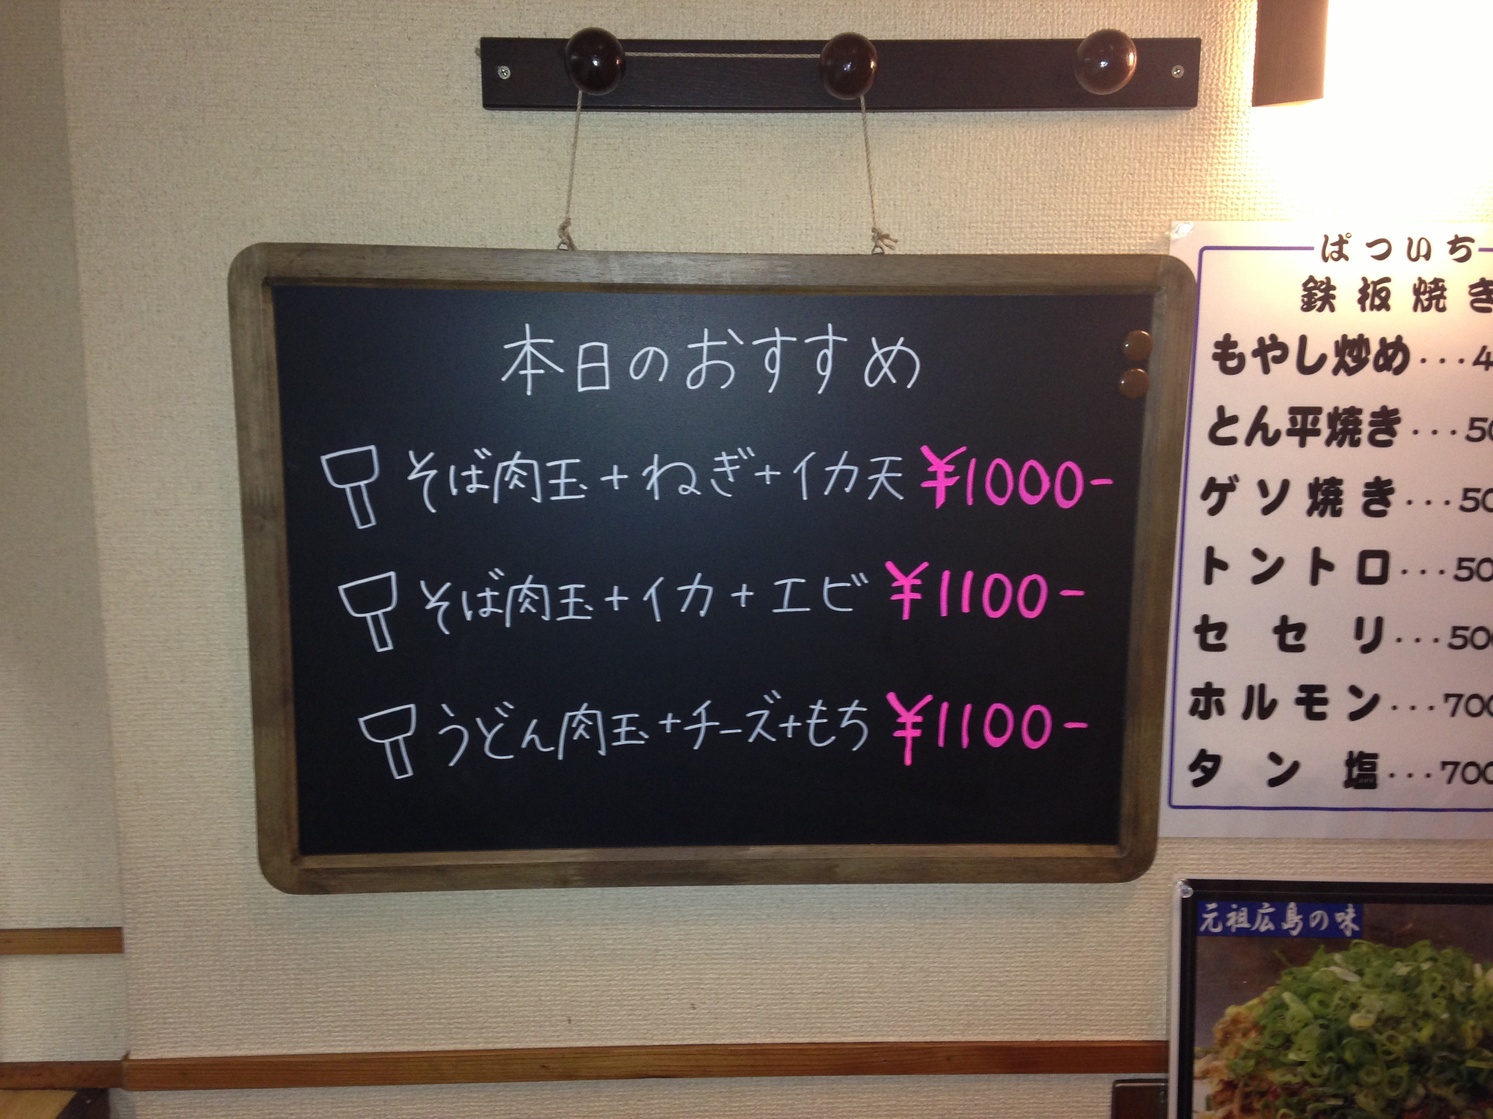 本日のおすすめ
そば肉玉+ねぎ+イカ天 ¥1000-
そば肉玉+イカ+エビ ¥1100-
うどん肉玉+チーズ+もち ¥1100-
ぱついち
鉄板焼き
もやし炒め...4
とん平焼き...50
ゲソ焼き...50
トントロ...50
セセリ...500
ホルモン...700
タン塩...700
元祖広島の味